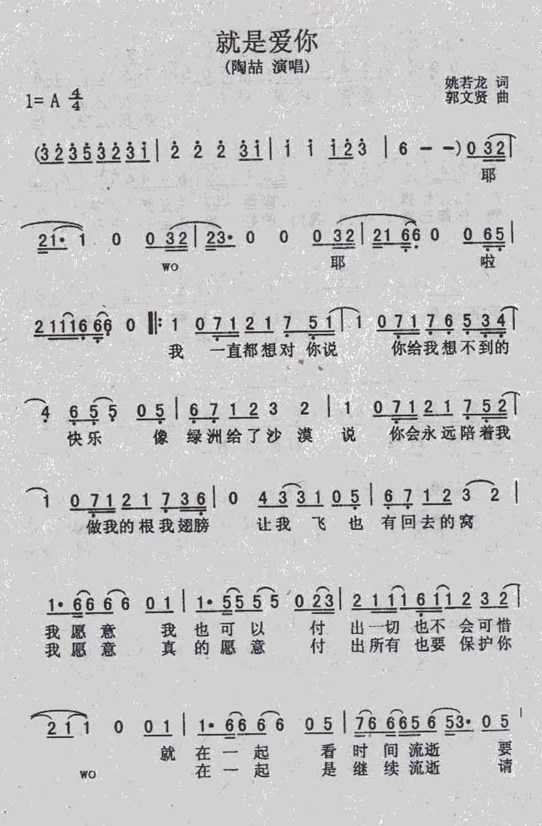 就是爱你
(陶喆 演唱)
姚若龙 词
1= A 4/4
郭文贤 曲
(3 2 3 5 3 2 3 1 | 2 2 2 3 1 | 1 1 1 2 3 | 6 - - ) 0 3 2 |
耶
2 1· 1 0 0 3 2 | 2 3· 0 0 0 3 2 | 2 1 6 6 0 0 6 5 |
wo 耶 啦
2 1 1 1 6 6 6 0 ‖: 1 0 7 1 2 1 7 5 1 | 1 0 7 1 7 6 5 3 4 |
我 一直都想对 你说 你给我想不到的
4 6 5 5 0 5 | 6 7 1 2 3 2 | 1 0 7 1 2 1 7 5 2 |
快乐 像 绿洲给了沙漠 说 你会永远陪着我
1 0 7 1 2 1 7 3 6 | 0 4 3 3 1 0 5 | 6 7 1 2 3 2 |
做我的根我翅膀 让我 飞 也 有回去的窝
1· 6 6 6 6 0 1 | 1· 5 5 5 5 0 2 3 | 2 1 1 1 6 1 1 2 3 2 |
我愿意 我 也可以 付 出一切 也不会可惜
我愿意 真 的愿意 付 出所有 也要保护你
2 1 1 0 0 1 | 1· 6 6 6 6 0 5 | 7 6 6 6 5 6 5 3· 0 5 |
就 在一起 看 时间流逝 要
wo 在一起 是 继续流逝 请